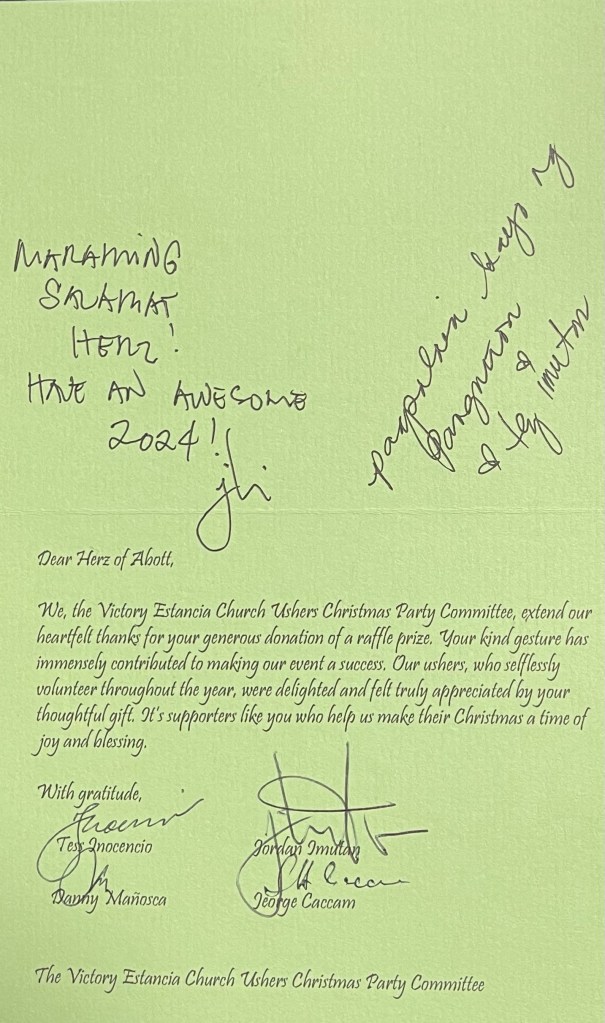 MARAMING
SALAMAT
HERZ!
HAVE AN AWESOME
2024!
pagpalain kayo ng
Panginoon
& Imutan
Dear Herz of Abott,
We, the Victory Estancia Church Ushers Christmas Party Committee, extend our
heartfelt thanks for your generous donation of a raffle prize. Your kind gesture has
immensely contributed to making our event a success. Our ushers, who selflessly
volunteer throughout the year, were delighted and felt truly appreciated by your
thoughtful gift. It's supporters like you who help us make their Christmas a time of
joy and blessing.
With gratitude,
Tess Inocencio
Jordan Imutan
Danny Mañosca
Jeorge Caccam
The Victory Estancia Church Ushers Christmas Party Committee